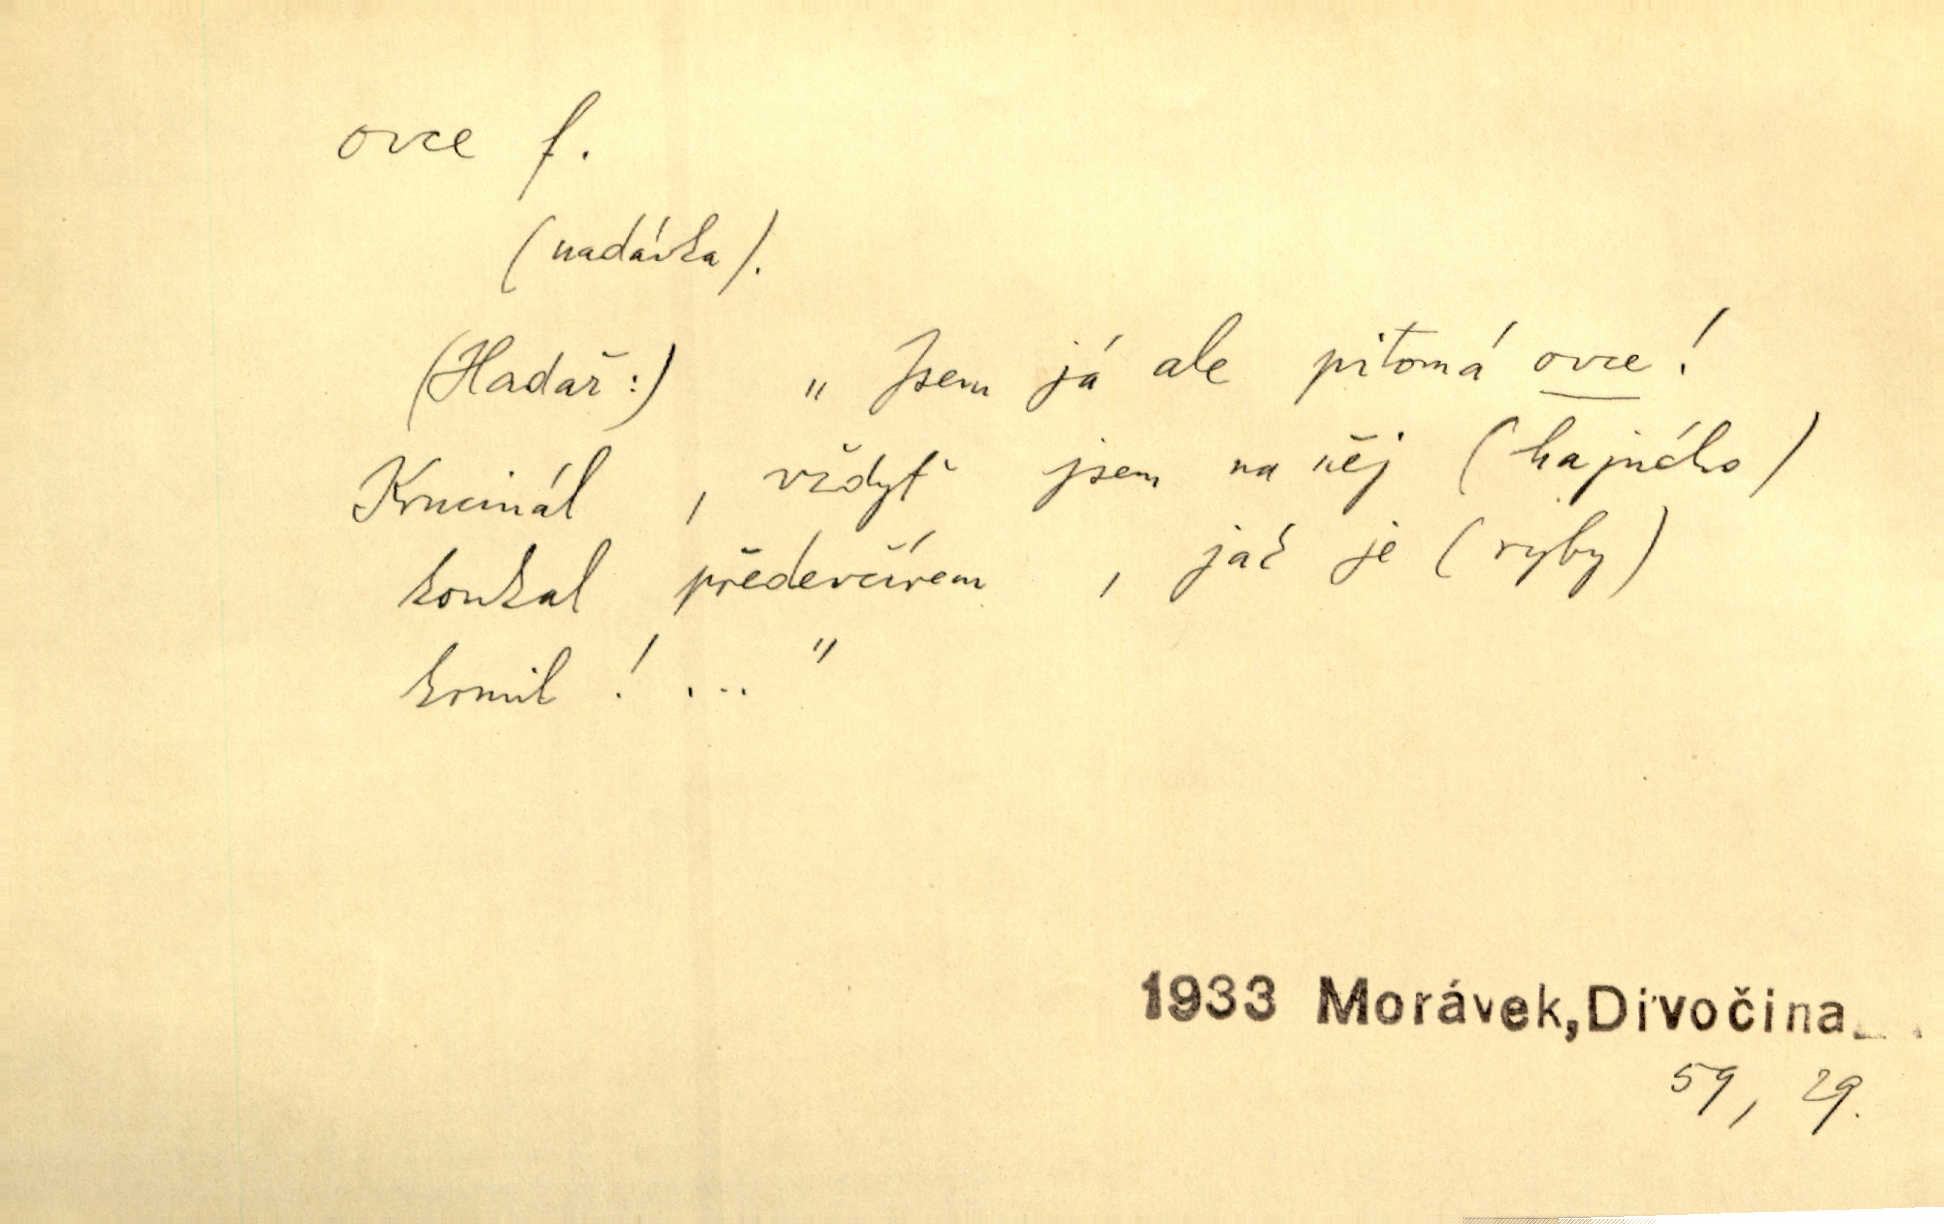 ovce f.
(nadávka).
(Hadař:) „Jsem já ale pitomá ovce!
Krucinál, vždyť jsem na něj (hajného)
koukal předevčírem, jak je (ryby)
krmil!..."
1933 Morávek, Divočina
59, 29.